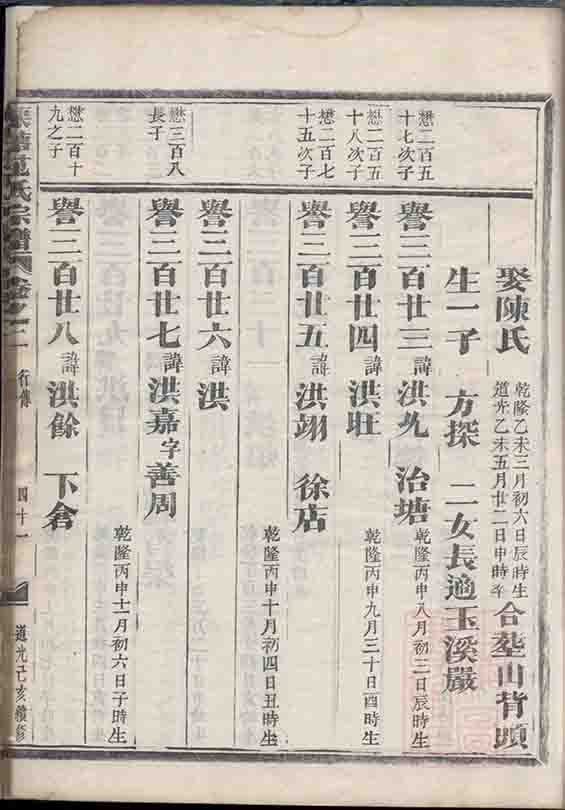 娶陳氏 乾隆乙未三月初六日辰時生 道光乙未五月廿二日申時卒 合塟山背頭
生一子 方探 二女長適玉溪嚴
懋二百五十七次子
譽三百廿三 諱洪 治塘 乾隆丙申八月初三日辰時生
懋二百五十八次子
譽三百廿四 諱洪旺 乾隆丙申九月三十日酉時生
懋二百七十五次子
譽三百廿五 諱洪翊 徐店
乾隆丙申十月初四日丑時生
譽三百廿六 諱洪
懋三百八長子
譽三百廿七 諱洪嘉字善周
乾隆丙申十二月初六日子時生
懋二百十九之子
譽三百廿八 諱洪餘 下倉
氏宗譜 卷之二 行傳 四十一 道光己亥續修